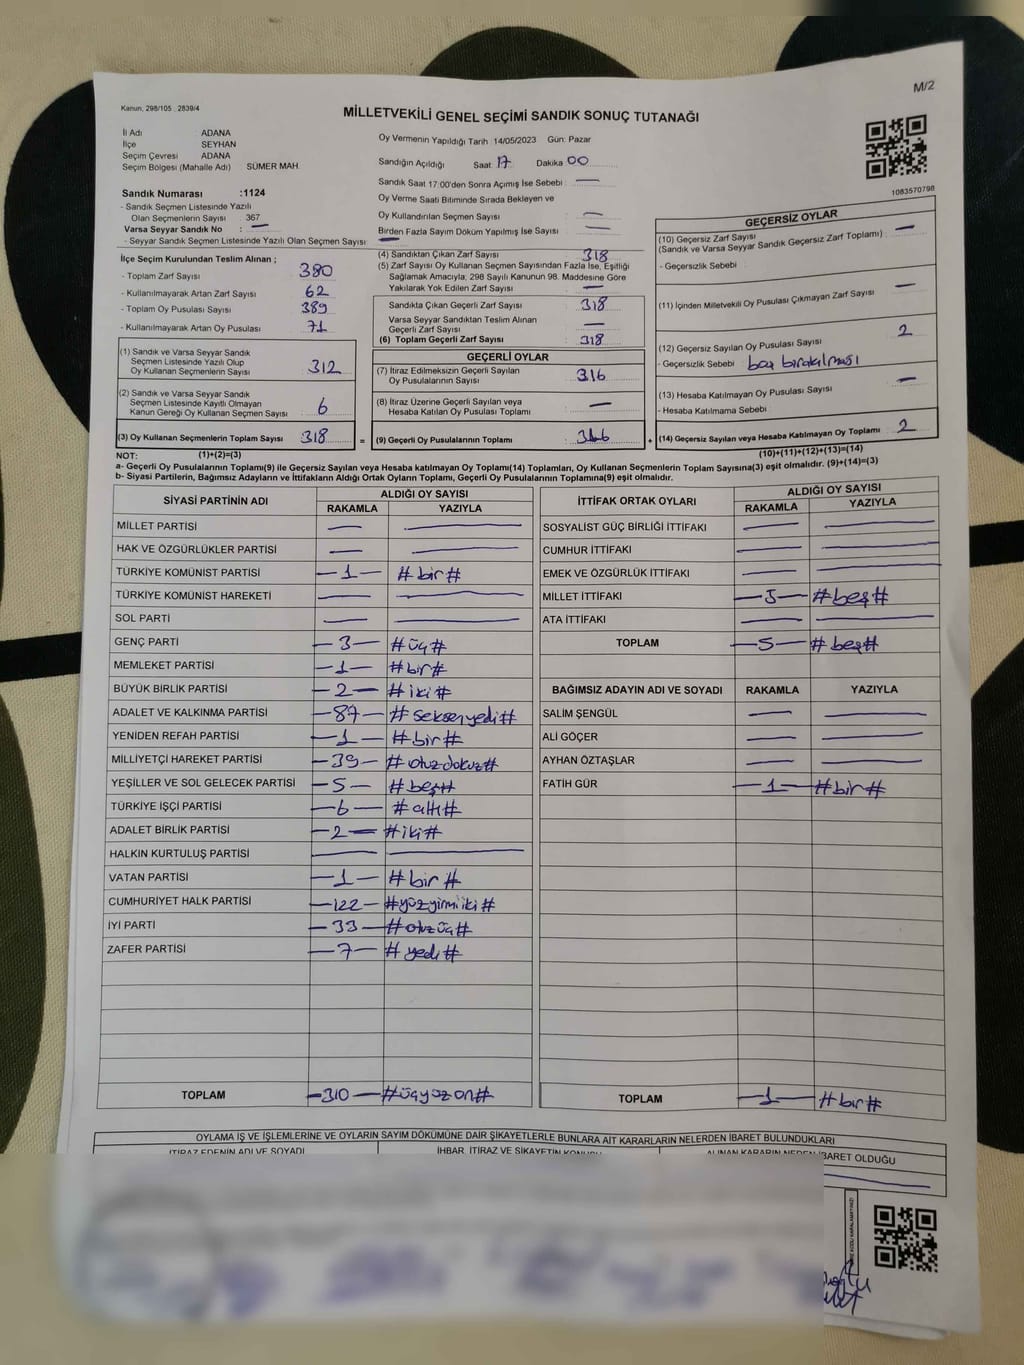 M/2
Kanun, 298/105 , 2839/4
MİLLETVEKİLİ GENEL SEÇİMİ SANDIK SONUÇ TUTANAĞI
İl Adı ADANA
İlçe SEYHAN
Seçim Çevresi ADANA
Seçim Bölgesi (Mahalle Adı) SÜMER MAH.
Sandık Numarası :1124
- Sandık Seçmen Listesinde Yazılı
Olan Seçmenlerin Sayısı : 367
Varsa Seyyar Sandık No : —
- Seyyar Sandık Seçmen Listesinde Yazılı Olan Seçmen Sayısı : —
Oy Vermenin Yapıldığı Tarih : 14/05/2023 Gün: Pazar
Sandığın Açıldığı Saat: 17 Dakika: 00
Sandık Saat 17:00'den Sonra Açımış İse Sebebi : —
Oy Verme Saati Bitiminde Sırada Bekleyen ve
Oy Kullandırılan Seçmen Sayısı : —
Birden Fazla Sayım Döküm Yapılmış İse Sayısı : —
1083570798
İlçe Seçim Kurulundan Teslim Alınan ;
- Toplam Zarf Sayısı : 380
- Kullanılmayarak Artan Zarf Sayısı : 62
- Toplam Oy Pusulası Sayısı : 389
- Kullanılmayarak Artan Oy Pusulası : 71
(1) Sandık ve Varsa Seyyar Sandık
Seçmen Listesinde Yazılı Olup
Oy Kullanan Seçmenlerin Sayısı : 312
(2) Sandık ve Varsa Seyyar Sandık
Seçmen Listesinde Kayıtlı Olmayan
Kanun Gereği Oy Kullanan Seçmen Sayısı : 6
(3) Oy Kullanan Seçmenlerin Toplam Sayısı : 318
(4) Sandıktan Çıkan Zarf Sayısı : 318
(5) Zarf Sayısı Oy Kullanan Seçmen Sayısından Fazla İse, Eşitliği
Sağlamak Amacıyla, 298 Sayılı Kanunun 98. Maddesine Göre
Yakılarak Yok Edilen Zarf Sayısı : —
Sandıkta Çıkan Geçerli Zarf Sayısı : 318
Varsa Seyyar Sandıktan Teslim Alınan
Geçerli Zarf Sayısı : —
(6) Toplam Geçerli Zarf Sayısı : 318
GEÇERLİ OYLAR
(7) İtiraz Edilmeksizin Geçerli Sayılan
Oy Pusulalarının Sayısı : 316
(8) İtiraz Üzerine Geçerli Sayılan veya
Hesaba Katılan Oy Pusulası Toplamı : —
= (9) Geçerli Oy Pusulalarının Toplamı : 316
GEÇERSİZ OYLAR
(10) Geçersiz Zarf Sayısı : —
(Sandık ve Varsa Seyyar Sandık Geçersiz Zarf Toplamı)
- Geçersizlik Sebebi :
(11) İçinden Milletvekili Oy Pusulası Çıkmayan Zarf Sayısı : —
(12) Geçersiz Sayılan Oy Pusulası Sayısı : 2
- Geçersizlik Sebebi : boş bırakılması
(13) Hesaba Katılmayan Oy Pusulası Sayısı : —
- Hesaba Katılmama Sebebi :
+ (14) Geçersiz Sayılan veya Hesaba Katılmayan Oy Toplamı : 2
NOT: (1)+(2)=(3) (10)+(11)+(12)+(13)=(14)
a- Geçerli Oy Pusulalarının Toplamı(9) ile Geçersiz Sayılan veya Hesaba katılmayan Oy Toplamı(14) Toplamları, Oy Kullanan Seçmenlerin Toplam Sayısına(3) eşit olmalıdır. (9)+(14)=(3)
b- Siyasi Partilerin, Bağımsız Adayların ve İttifakların Aldığı Ortak Oyların Toplamı, Geçerli Oy Pusulalarının Toplamına(9) eşit olmalıdır.
SİYASİ PARTİNİN ADI ALDIĞI OY SAYISI
RAKAMLA YAZIYLA
MİLLET PARTİSİ — —
HAK VE ÖZGÜRLÜKLER PARTİSİ — —
TÜRKİYE KOMÜNİST PARTİSİ —1— #bir#
TÜRKİYE KOMÜNİST HAREKETİ — —
SOL PARTİ — —
GENÇ PARTİ —3— #üç#
MEMLEKET PARTİSİ —1— #bir#
BÜYÜK BİRLİK PARTİSİ —2— #iki#
ADALET VE KALKINMA PARTİSİ —87— #seksenyedi#
YENİDEN REFAH PARTİSİ —1— #bir#
MİLLİYETÇİ HAREKET PARTİSİ —39— #otuzdokuz#
YEŞİLLER VE SOL GELECEK PARTİSİ —5— #beş#
TÜRKİYE İŞÇİ PARTİSİ —6— #altı#
ADALET BİRLİK PARTİSİ —2— #iki#
HALKIN KURTULUŞ PARTİSİ — —
VATAN PARTİSİ —1— #bir#
CUMHURİYET HALK PARTİSİ —122— #yüzyirmiiki#
İYİ PARTİ —33— #otuzüç#
ZAFER PARTİSİ —7— #yedi#
TOPLAM —310— #üçyüzon#
İTTİFAK ORTAK OYLARI ALDIĞI OY SAYISI
RAKAMLA YAZIYLA
SOSYALİST GÜÇ BİRLİĞİ İTTİFAKI — —
CUMHUR İTTİFAKI — —
EMEK VE ÖZGÜRLÜK İTTİFAKI — —
MİLLET İTTİFAKI —5— #beş#
ATA İTTİFAKI — —
TOPLAM —5— #beş#
BAĞIMSIZ ADAYIN ADI VE SOYADI RAKAMLA YAZIYLA
SALİM ŞENGÜL — —
ALİ GÖÇER — —
AYHAN ÖZTAŞLAR — —
FATİH GÜR —1— #bir#
TOPLAM —1— #bir#
OYLAMA İŞ VE İŞLEMLERİNE VE OYLARIN SAYIM DÖKÜMÜNE DAİR ŞİKAYETLERLE BUNLARA AİT KARARLARIN NELERDEN İBARET BULUNDUKLARI
İTİRAZ EDENİN ADI VE SOYADI İHBAR, İTİRAZ VE ŞİKAYETİN KONUSU ALINAN KARARIN NEDEN İBARET OLDUĞU